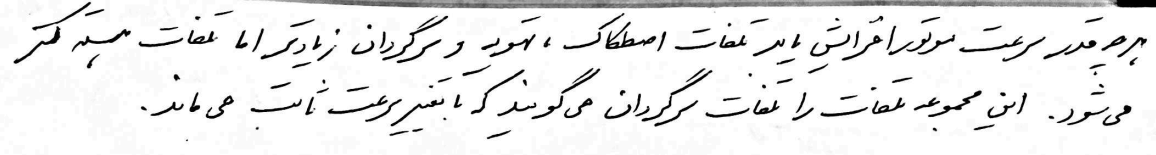 هر چه قدر سرعت موتور افزایش یابد تلفات اصطکاک، تهویه و سرگردان زیادتر اما تلفات هسته کمتر
می‌شود. این مجموعه تلفات را تلفات سرگردان می‌گویند که با تغییر سرعت ثابت می‌ماند.